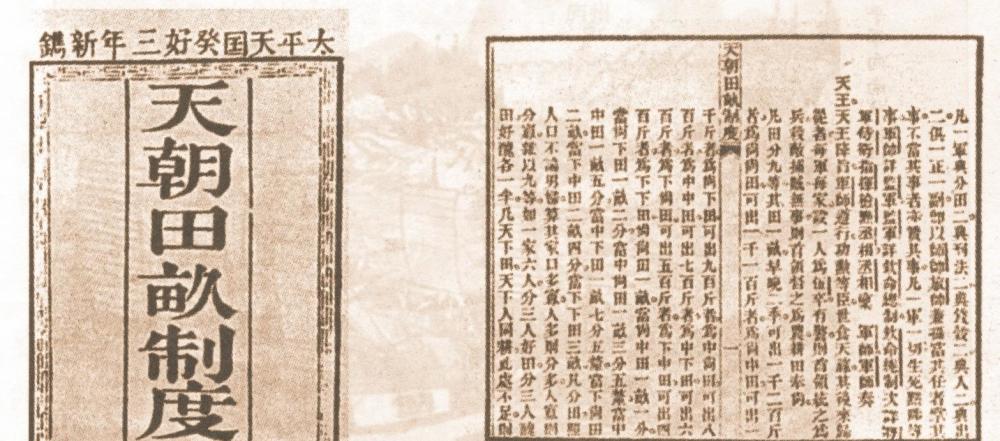 太平天囯癸好三年新鐫
天朝田畝制度
凡一軍典分田二典刑法二典錢穀二典入二典出
二俱一正一副即以師帥旅帥兼攝當其任者掌其
事不當其事者亦贊其事凡一軍一切生死黜陟等
事軍帥詳監軍監軍詳欽命總制欽命總制次詳將
軍侍衛指揮檢點丞相丞相稟軍師軍師奏
天王天王降旨軍師遵行功勳等臣世食天祿其後來歸
從者每軍每家設一人為伍卒有警則首領統之為
兵殺敵捕賊無事則首領督之為農耕田奉尚
凡田分九等其田一畝早晚二季可出一千二百斤
者為尚尚田可出一千一百斤者為尚中田可出一
天朝田畝制度 一
千斤者為尚下田可出九百斤者為中尚田可出八
百斤者為中中田可出七百斤者為中下田可出六
百斤者為下尚田可出五百斤者為下中田可出四
百斤者為下下田尚尚田一畝當尚中田一畝一分
當尚下田一畝二分當中尚田一畝三分五釐當中
中田一畝五分當中下田一畝七分五釐當下尚田
二畝當下中田二畝四分當下下田三畝凡分田照
人口不論男婦算其家口多寡人多則分多人寡則
分寡雜以九等如一家六人分三人好田分三人醜
田好醜各一半凡天下田天下人同耕此處不足則